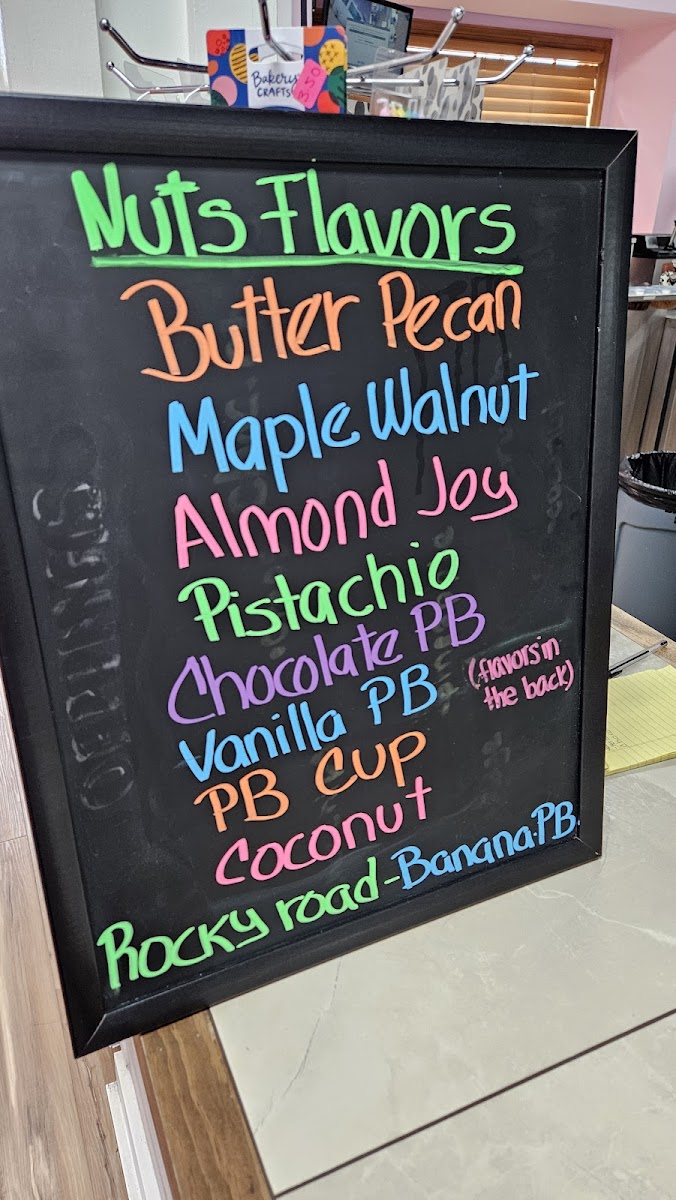 Bakery
CRAFTS
3.50
Nuts Flavors
Butter Pecan
Maple Walnut
Almond Joy
Pistachio
Chocolate PB
Vanilla PB
(flavors in
the back)
PB Cup
Coconut
Rocky road-Banana.PB.